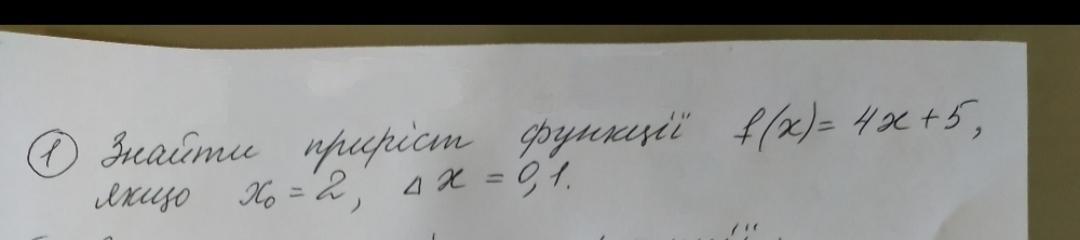 ① Знайти приріст функції f(x)= 4x+5,
якщо x₀ = 2, Δx = 0,1.